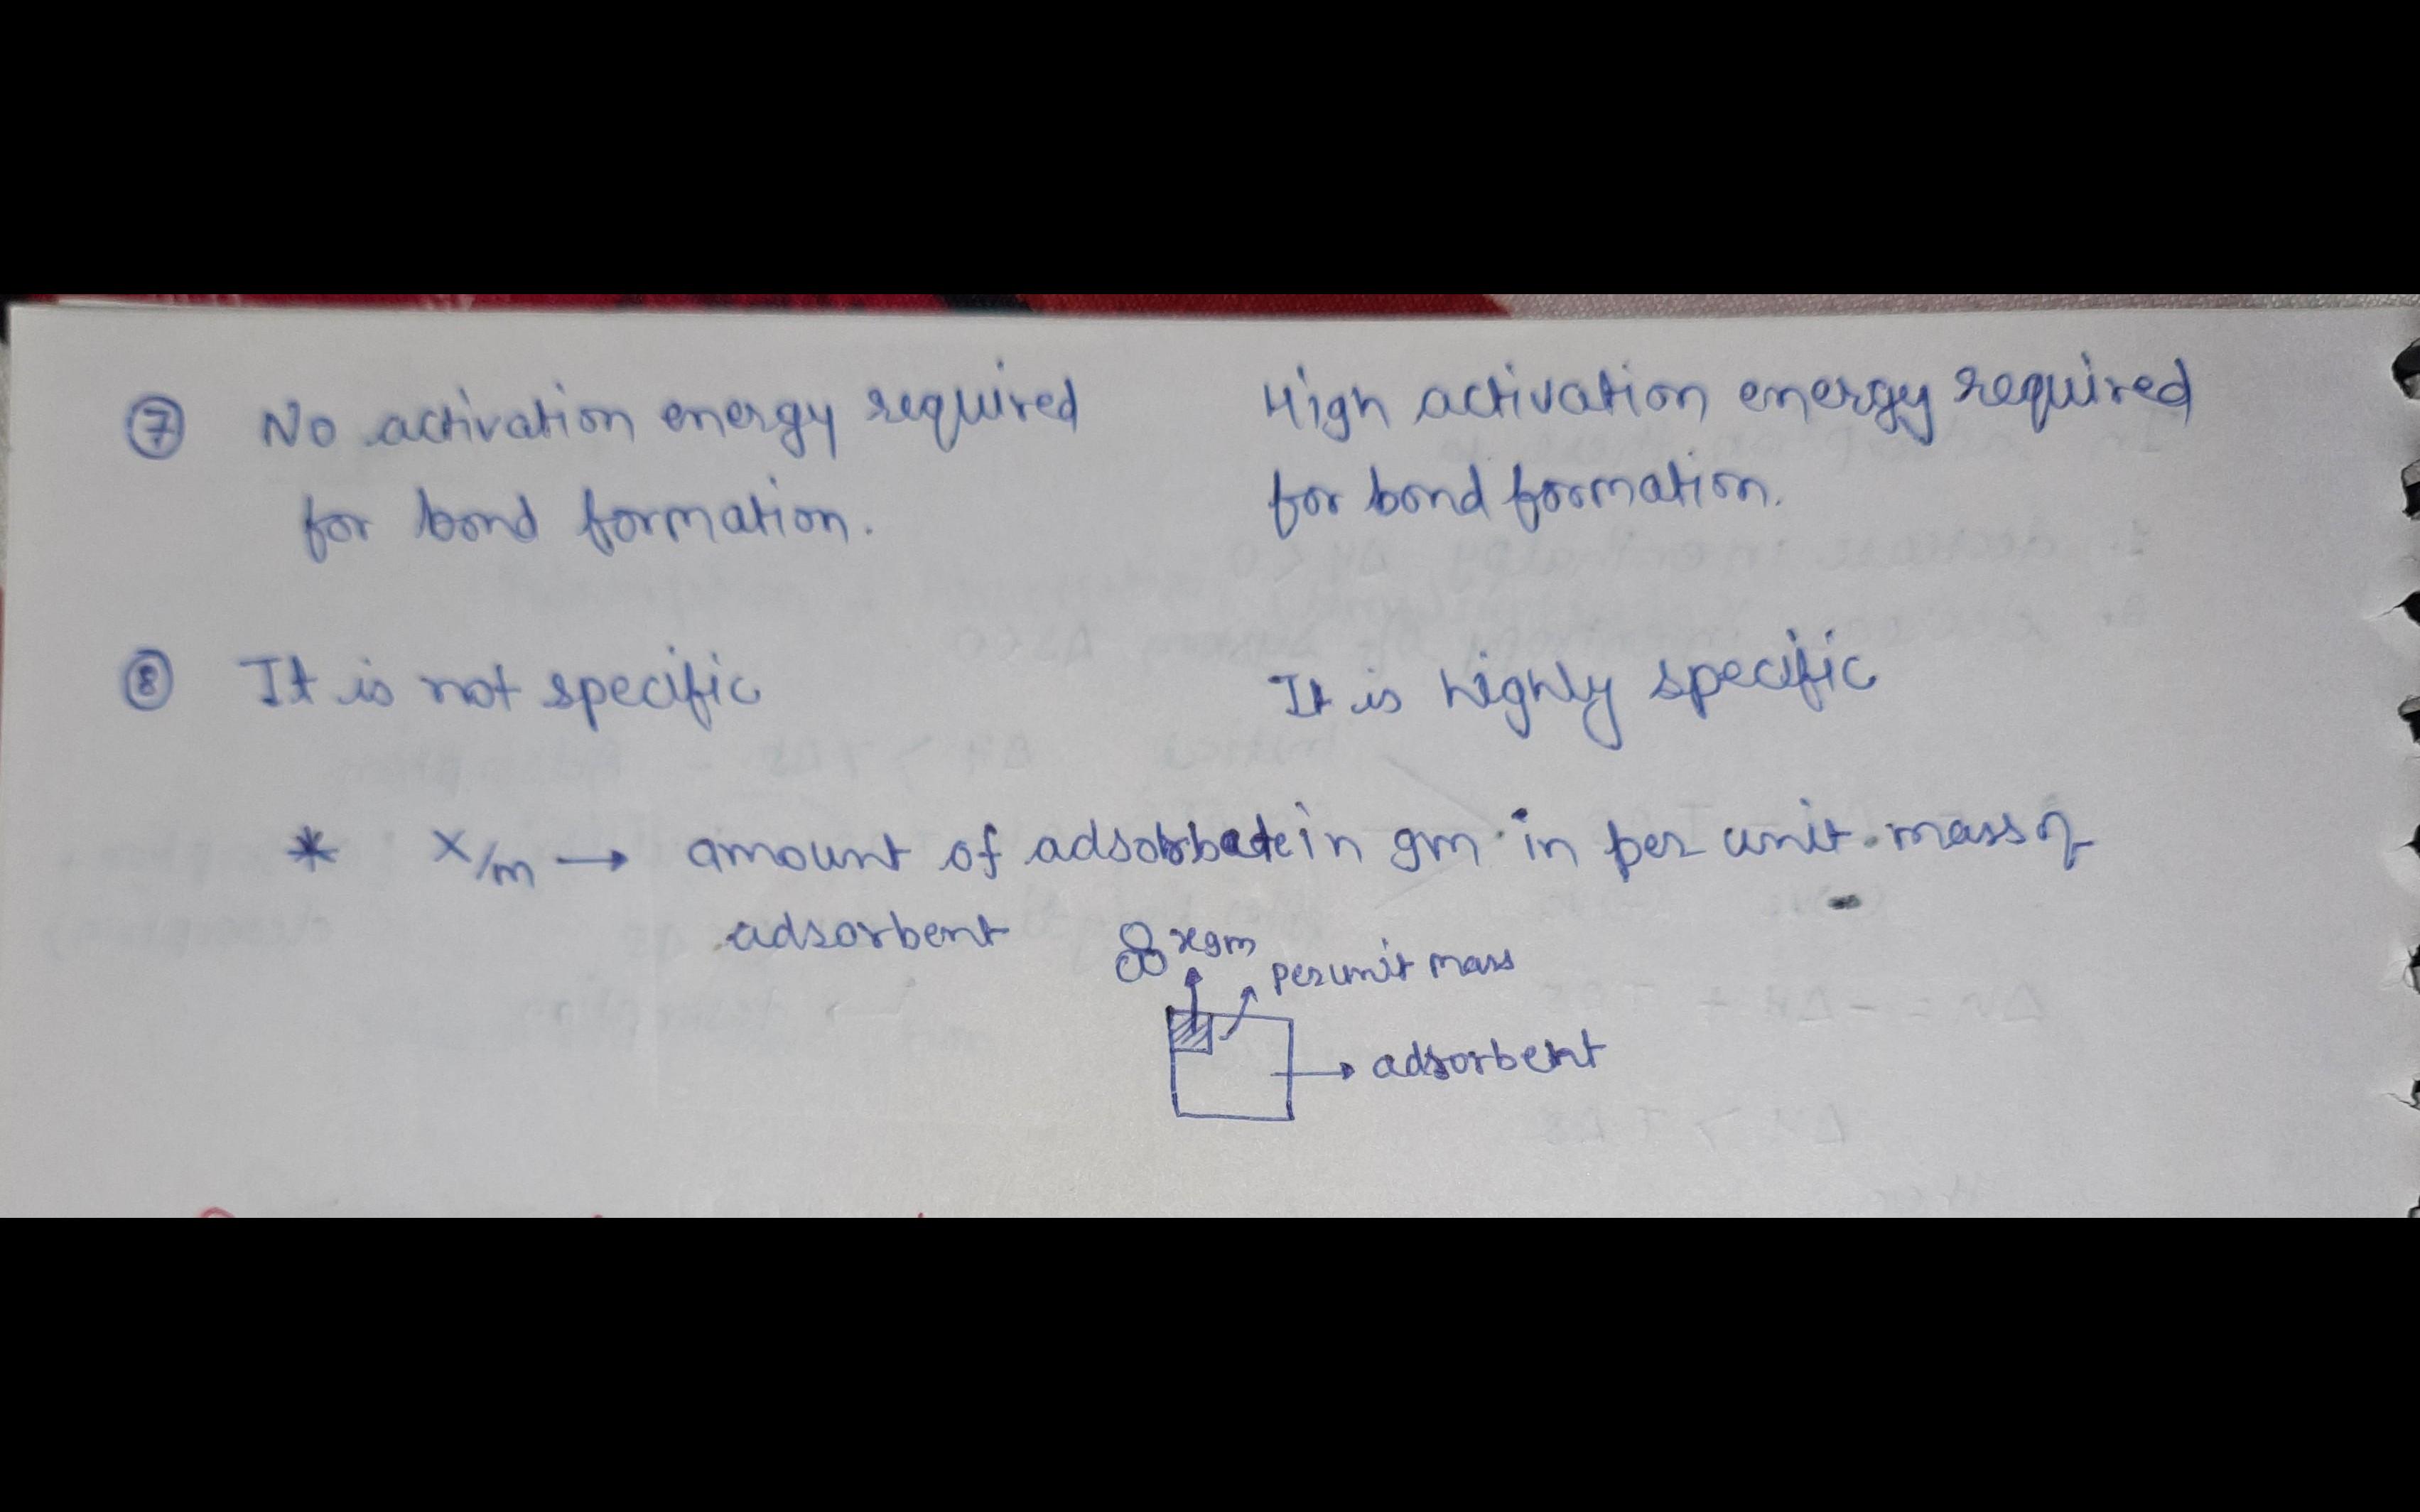 ⑦ No activation energy required High activation energy required
for bond formation. for bond formation.
⑧ It is not specific It is highly specific
* x/m → amount of adsorbate in gm. in per unit mass of
adsorbent
x gm
per unit mass
→ adsorbent